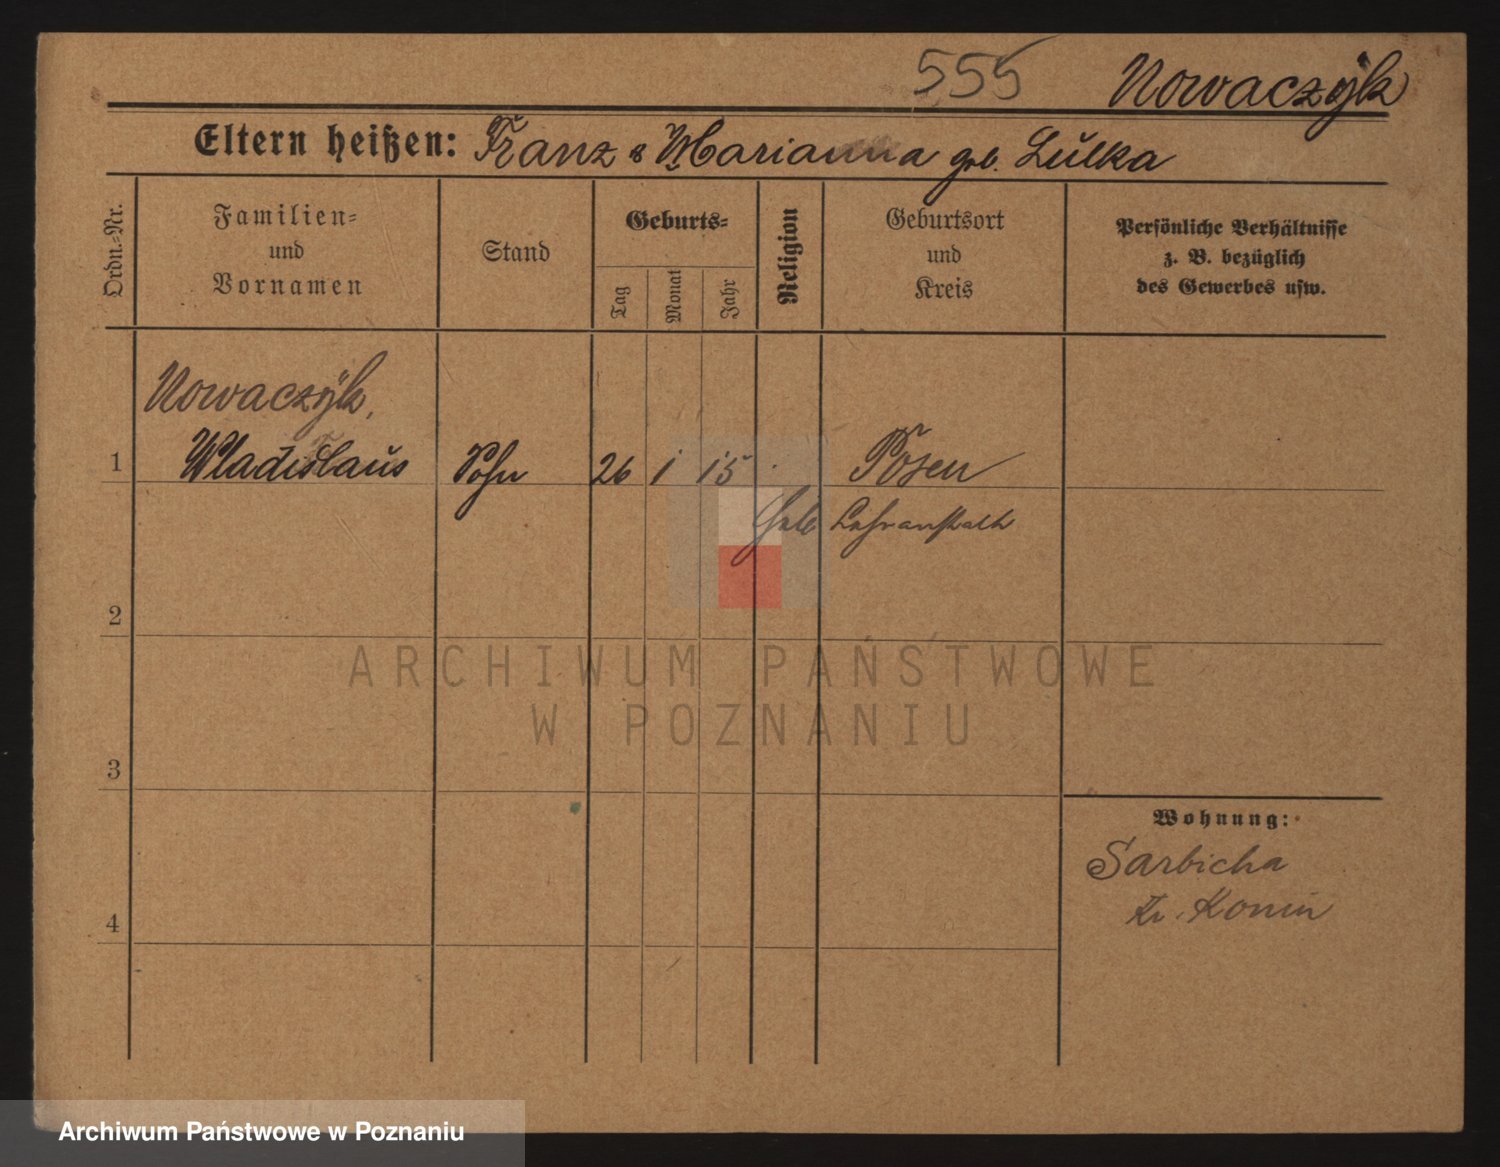 555 Nowaczÿk
Eltern heißen: Franz & Marianna geb. Lulka
Ordn.-Nr.
Familien-
und
Vornamen
Stand
Geburts-
Tag
Monat
Jahr
Religion
Geburtsort
und
Kreis
Persönliche Verhältnisse
z. B. bezüglich
des Gewerbes usw.
Nowaczÿk,
1 Wladislaus Sohn 26 1 15 Posen
Heb Lehranstalt
2
3
4
Wohnung:
Sarbicha
Kr. Konin
ARCHIWUM PAŃSTWOWE
W POZNANIU
Archiwum Państwowe w Poznaniu